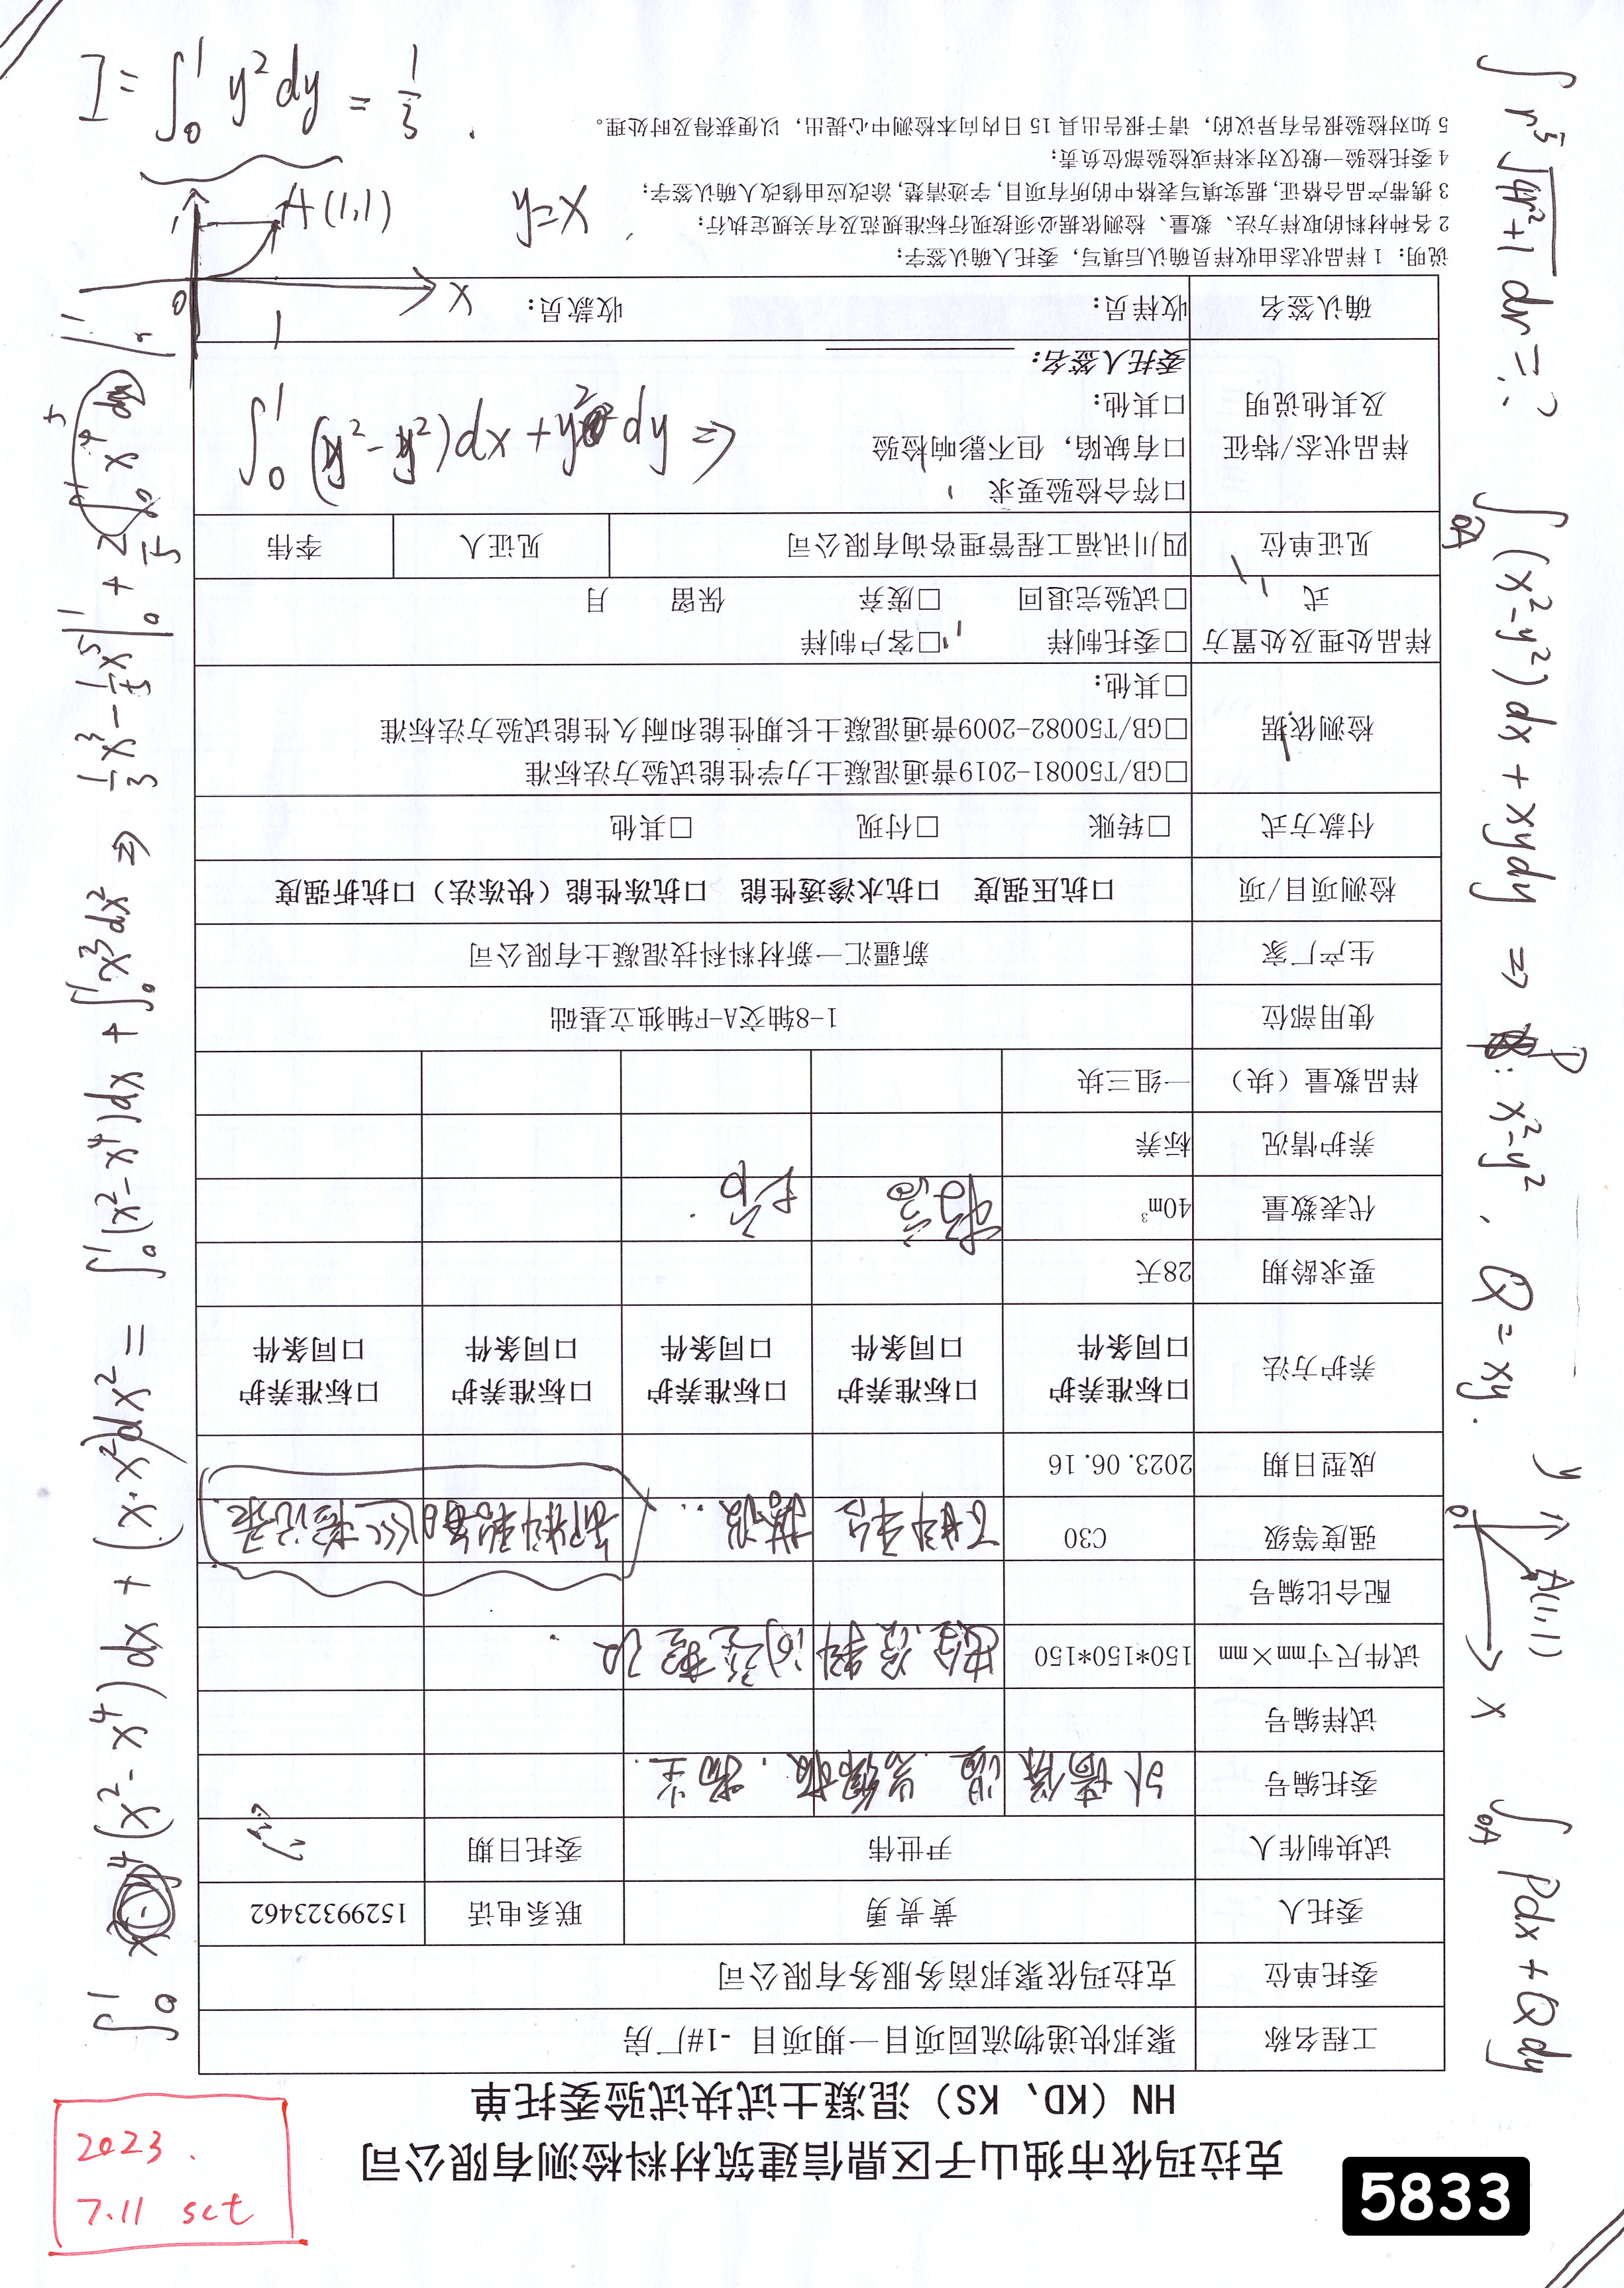 克拉玛依市独山子区鼎信建筑材料检测有限公司
HN（KD、KS）混凝土试块试验委托单
工程名称 聚邦快递物流园项目一期项目 -1#厂房
委托单位 克拉玛依聚邦商务服务有限公司
委托人 黄贵勇 联系电话 15299323462
试块制作人 尹世伟 委托日期
委托编号
试样编号
试件尺寸mm×mm 150*150*150
配合比编号
强度等级 C30
成型日期 2023. 06. 16
养护方法 □标准养护 □标准养护 □标准养护 □标准养护 □标准养护
□同条件 □同条件 □同条件 □同条件 □同条件
要求龄期 28天
代表数量 40m³
养护情况 标养
样品数量（块） 一组三块
使用部位 1-8轴交A-F轴独立基础
生产厂家 新疆汇一新材料科技混凝土有限公司
检测项目/项 □抗压强度 □抗水渗透性能 □抗冻性能（快冻法）□抗折强度
付款方式 □转账 □付现 □其他
检测依据 □GB/T50081-2019普通混凝土力学性能试验方法标准
□GB/T50082-2009普通混凝土长期性能和耐久性能试验方法标准
□其他:
样品处理及处置方式 □委托制样 □客户制样
□试验完退回 □废弃 保留 月
见证单位 四川讯福工程管理咨询有限公司 见证人 李伟
样品状态/特征及其他说明 □符合检验要求
□有缺陷，但不影响检验
□其他:
委托人签名:
确认签名 收样员: 收款员:
说明: 1 样品状态由收样员确认后填写，委托人确认签字;
2 各种材料的取样方法、数量、检测依据必须按现行标准规范及有关规定执行;
3 携带产品合格证,据实填写表格中的所有项目,字迹清楚,涂改应由修改人确认签字;
4 委托检验一般仅对来样或检验部位负责;
5 如对检验报告有异议的，请于报告出具 15 日内向本检测中心提出，以便获得及时处理。
I = ∫₀¹ y² dy = 1/3 .
A (1,1)
y=x
1
0
x
1
∫₀¹ (y² - y²) dx + y² dy ⇒
∫ r³ √(4r²+1) dr = ?
∫OA (x² - y²) dx + xy dy ⇒ P: x² - y² 、 Q = xy.
y
0
A(1,1)
x
∫OA Pdx + Qdy
(x² - x⁴) dx + (x·x²) dx² =
∫₀¹ (x² - x⁴) dx + ∫₀¹ x³ dx² ⇒ 1/3 x³ - 1/5 x⁵ |₀¹ + 2 ∫₀¹ x⁴
2023.
7.11 sct
5833